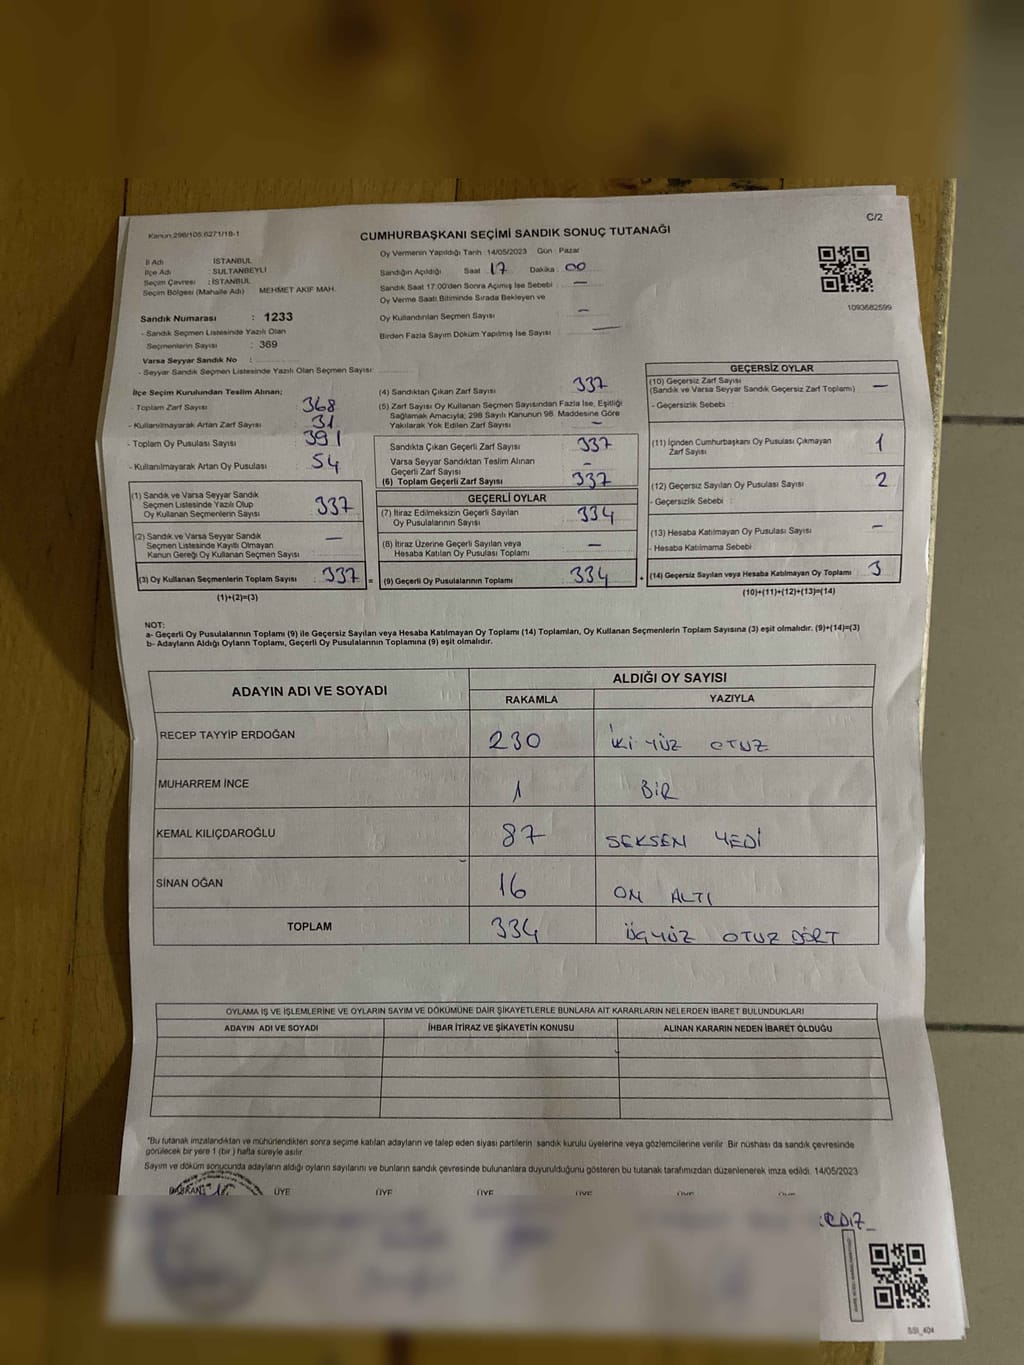 C/2
Kanun:298/105;6271/18-1
CUMHURBAŞKANI SEÇİMİ SANDIK SONUÇ TUTANAĞI
İl Adı İSTANBUL
İlçe Adı : SULTANBEYLİ
Seçim Çevresi : İSTANBUL
Seçim Bölgesi (Mahalle Adı) MEHMET AKİF MAH.
Sandık Numarası : 1233
- Sandık Seçmen Listesinde Yazılı Olan
Seçmenlerin Sayısı : 369
Varsa Seyyar Sandık No :
- Seyyar Sandık Seçmen Listesinde Yazılı Olan Seçmen Sayısı:
Oy Vermenin Yapıldığı Tarih :14/05/2023 Gün : Pazar
Sandığın Açıldığı Saat 17 Dakika : 00
Sandık Saat 17:00'den Sonra Açımış İse Sebebi : —
Oy Verme Saati Bitiminde Sırada Bekleyen ve
Oy Kullandırılan Seçmen Sayısı : —
Birden Fazla Sayım Döküm Yapılmış İse Sayısı : —
1093682599
İlçe Seçim Kurulundan Teslim Alınan;
- Toplam Zarf Sayısı : 368
- Kullanılmayarak Artan Zarf Sayısı : 31
- Toplam Oy Pusulası Sayısı : 391
- Kullanılmayarak Artan Oy Pusulası : 54
(1) Sandık ve Varsa Seyyar Sandık
Seçmen Listesinde Yazılı Olup
Oy Kullanan Seçmenlerin Sayısı 337
(2) Sandık ve Varsa Seyyar Sandık
Seçmen Listesinde Kayıtlı Olmayan
Kanun Gereği Oy Kullanan Seçmen Sayısı —
(3) Oy Kullanan Seçmenlerin Toplam Sayısı 337 =
(1)+(2)=(3)
(4) Sandıktan Çıkan Zarf Sayısı : 337
(5) Zarf Sayısı Oy Kullanan Seçmen Sayısından Fazla İse, Eşitliği
Sağlamak Amacıyla; 298 Sayılı Kanunun 98. Maddesine Göre
Yakılarak Yok Edilen Zarf Sayısı : —
Sandıkta Çıkan Geçerli Zarf Sayısı : 337
Varsa Seyyar Sandıktan Teslim Alınan
Geçerli Zarf Sayısı : —
(6) Toplam Geçerli Zarf Sayısı : 337
GEÇERLİ OYLAR
(7) İtiraz Edilmeksizin Geçerli Sayılan
Oy Pusulalarının Sayısı : 334
(8) İtiraz Üzerine Geçerli Sayılan veya
Hesaba Katılan Oy Pusulası Toplamı : —
(9) Geçerli Oy Pusulalarının Toplamı 334 +
GEÇERSİZ OYLAR
(10) Geçersiz Zarf Sayısı
(Sandık ve Varsa Seyyar Sandık Geçersiz Zarf Toplamı) : —
- Geçersizlik Sebebi :
(11) İçinden Cumhurbaşkanı Oy Pusulası Çıkmayan
Zarf Sayısı : 1
(12) Geçersiz Sayılan Oy Pusulası Sayısı : 2
- Geçersizlik Sebebi :
(13) Hesaba Katılmayan Oy Pusulası Sayısı : —
- Hesaba Katılmama Sebebi :
(14) Geçersiz Sayılan veya Hesaba Katılmayan Oy Toplamı : 3
(10)+(11)+(12)+(13)=(14)
NOT:
a- Geçerli Oy Pusulalarının Toplamı (9) ile Geçersiz Sayılan veya Hesaba Katılmayan Oy Toplamı (14) Toplamları, Oy Kullanan Seçmenlerin Toplam Sayısına (3) eşit olmalıdır. (9)+(14)=(3)
b- Adayların Aldığı Oyların Toplamı, Geçerli Oy Pusulalarının Toplamına (9) eşit olmalıdır.
ADAYIN ADI VE SOYADI ALDIĞI OY SAYISI
RAKAMLA YAZIYLA
RECEP TAYYİP ERDOĞAN 230 İKİ YÜZ OTUZ
MUHARREM İNCE 1 BİR
KEMAL KILIÇDAROĞLU 87 SEKSEN YEDİ
SİNAN OĞAN 16 ON ALTI
TOPLAM 334 ÜÇYÜZ OTUZ DÖRT
OYLAMA İŞ VE İŞLEMLERİNE VE OYLARIN SAYIM VE DÖKÜMÜNE DAİR ŞİKAYETLERLE BUNLARA AİT KARARLARIN NELERDEN İBARET BULUNDUKLARI
ADAYIN ADI VE SOYADI İHBAR İTİRAZ VE ŞİKAYETİN KONUSU ALINAN KARARIN NEDEN İBARET OLDUĞU
*Bu tutanak imzalandıktan ve mühürlendikten sonra seçime katılan adayların ve talep eden siyasi partilerin sandık kurulu üyelerine veya gözlemcilerine verilir. Bir nüshası da sandık çevresinde
görülecek bir yere 1 (bir ) hafta süreyle asılır.
Sayım ve döküm sonucunda adayların aldığı oyların sayılarını ve bunların sandık çevresinde bulunanlara duyurulduğunu gösteren bu tutanak tarafımızdan düzenlenerek imza edildi. 14/05/2023
BAŞKAN ÜYE ÜYE ÜYE ÜYE ÜYE ÜYE
SSI_404